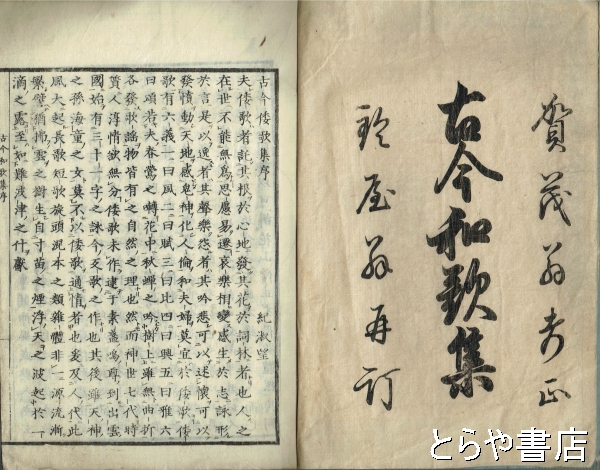 賀茂翁考正
古今和歌集
鈴屋翁再訂
古今倭歌集序
紀淑望
夫倭歌者託其根於心地發其花於詞林者也人之
在世不能無爲思慮易遷哀樂相變感生於志詠形
於言是以逸者其聲樂怨者其吟悲可以述懷可以
發憤動天地感鬼神化人倫和夫婦莫宜於倭歌倭
歌有六義一曰風二曰賦三曰比四曰興五曰雅六
曰頌若夫春鶯之囀花中秋蟬之吟樹上雖無曲折
各發歌謠物皆有之自然之理也然而神世七代時
質人淳情欲無分倭歌未作逮于素盞嗚尊到出雲
國始有三十一字之詠今反歌之作也其後雖天神
之孫海童之女莫不以倭歌通情者也爰及人代此
風大起長歌短歌旋頭混本之類雜體非一源流漸
繁譬猶拂雲之樹生自寸苗之煙浮天之波起於一
滴之露至如難波津之什獻
古今和歌集序
とらや書店